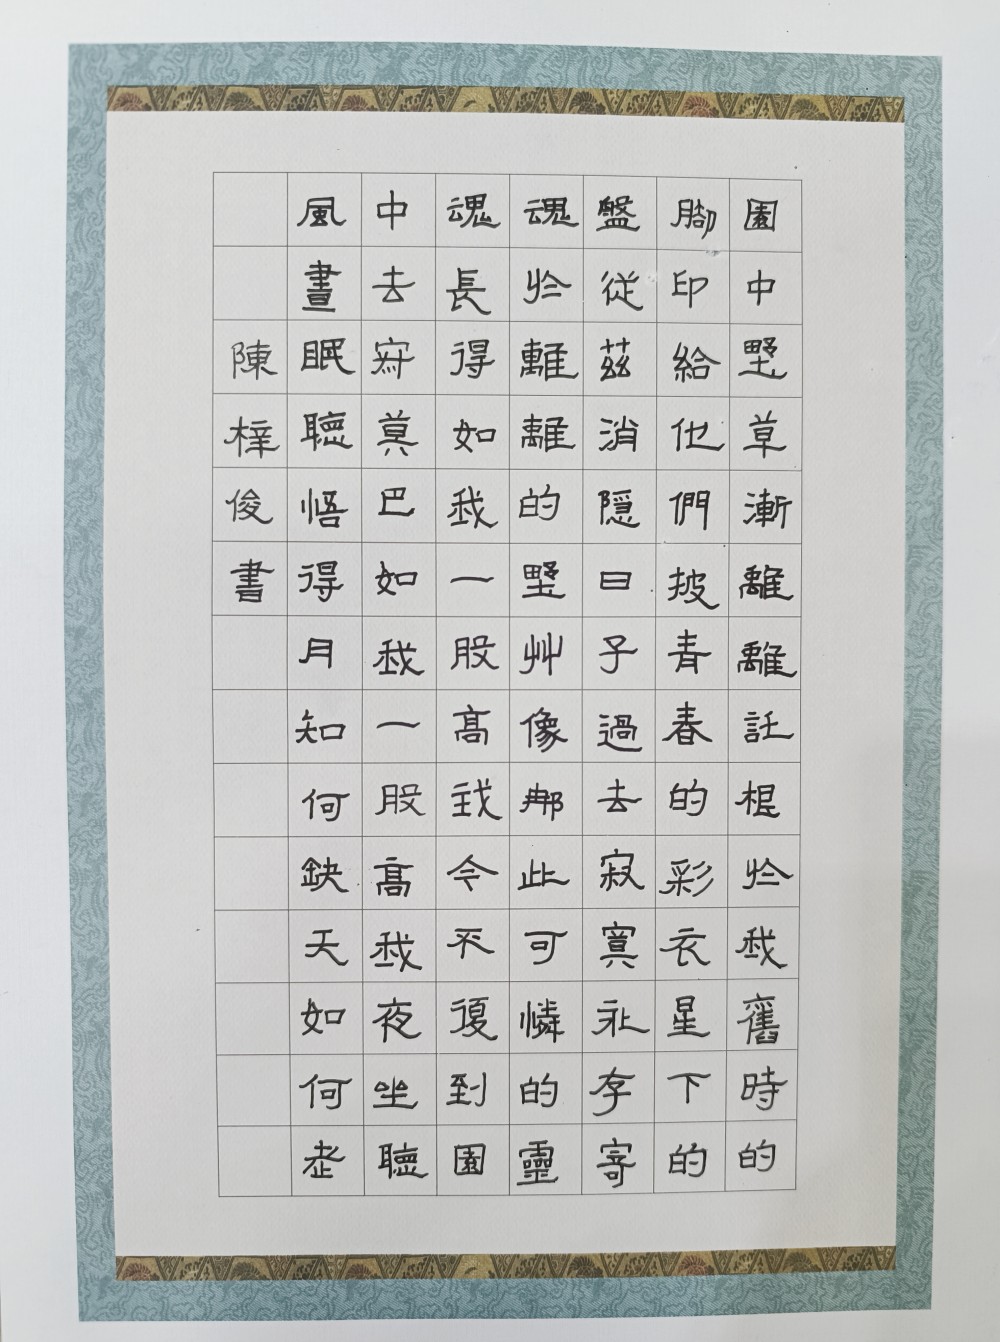 園中野草漸離離託根於我舊時的
腳印給他們披青春的彩衣星下的
盤從茲消隱日子過去寂寞永存寄
魂於離離的野艸像那此可憐的靈
魂長得如我一股高我今不復到園
中去寂莫巴如我一股高我夜坐聽
風晝眠聽悟得月知何缺天如何老
陳梓俊書